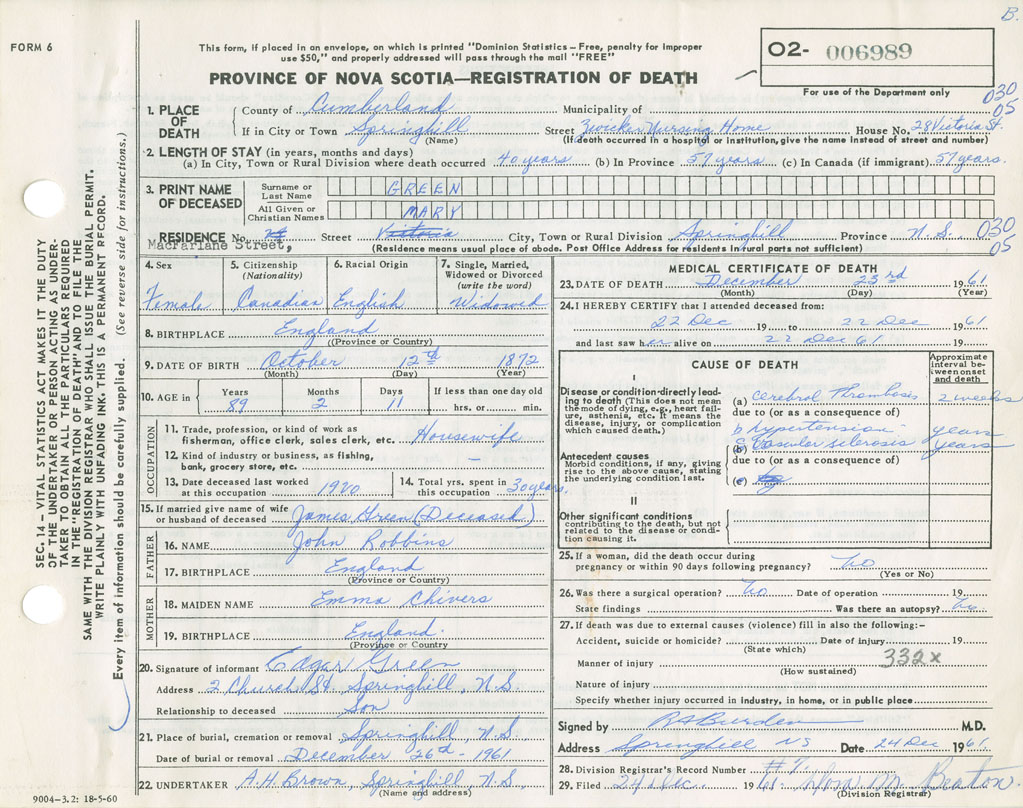 B.
FORM 6
This form, if placed in an envelope, on which is printed "Dominion Statistics – Free, penalty for improper
use $50," and properly addressed will pass through the mail "FREE"
PROVINCE OF NOVA SCOTIA—REGISTRATION OF DEATH
O2- 006989
For use of the Department only
030
05
1. PLACE OF DEATH
County of Cumberland Municipality of
If in City or Town Springhill Street Zwicker Nursing Home House No. 28 Victoria St.
(Name) (If death occurred in a hospital or institution, give the name instead of street and number)
2. LENGTH OF STAY (in years, months and days)
(a) In City, Town or Rural Division where death occurred 40 years (b) In Province 57 years (c) In Canada (if immigrant) 57 years.
3. PRINT NAME OF DECEASED
Surname or Last Name GREEN
All Given or Christian Names MARY
RESIDENCE No. Street Victoria City, Town or Rural Division Springhill Province N.S.
030
05
MacFarlane Street,
(Residence means usual place of abode. Post Office Address for residents in rural parts not sufficient)
4. Sex
Female
5. Citizenship (Nationality)
Canadian
6. Racial Origin
English
7. Single, Married, Widowed or Divorced (write the word)
Widowed
8. BIRTHPLACE England
(Province or Country)
9. DATE OF BIRTH October 12th 1872
(Month) (Day) (Year)
10. AGE in Years Months Days If less than one day old
89 2 11 hrs. or min.
OCCUPATION
11. Trade, profession, or kind of work as
fisherman, office clerk, sales clerk, etc. Housewife
12. Kind of industry or business, as fishing,
bank, grocery store, etc. –
13. Date deceased last worked at this occupation 1920
14. Total yrs. spent in this occupation 30 years
15. If married give name of wife
or husband of deceased James Green (Deceased)
FATHER
16. NAME John Robbins
17. BIRTHPLACE England
(Province or Country)
MOTHER
18. MAIDEN NAME Emma Chivers
19. BIRTHPLACE England.
(Province or Country)
20. Signature of informant Edgar Green
Address 2 Church St. Springhill, N.S.
Relationship to deceased Son
21. Place of burial, cremation or removal Springhill N.S.
Date of burial or removal December 26th - 1961
22. UNDERTAKER A.H. Brown, Springhill, N.S.
(Name and address)
MEDICAL CERTIFICATE OF DEATH
23. DATE OF DEATH December 23rd 1961
(Month) (Day) (Year)
24. I HEREBY CERTIFY that I attended deceased from:
22 Dec 19 to 22 Dec 1961
and last saw her alive on 22 Dec 61 19
CAUSE OF DEATH
Approximate interval between onset and death
I
Disease or condition directly leading to death (This does not mean
the mode of dying, e.g., heart failure, asthenia, etc. It means the
disease, injury, or complication
which caused death.)
(a) Cerebral Thrombosis 2 weeks
due to (or as a consequence of)
b hypertension years
(b) & Vascular sclerosis years
due to (or as a consequence of)
(c)
Antecedent causes
Morbid conditions, if any, giving
rise to the above cause, stating
the underlying condition last.
II
Other significant conditions
contributing to the death, but not
related to the disease or condition causing it.
25. If a woman, did the death occur during
pregnancy or within 90 days following pregnancy? No
(Yes or No)
26. Was there a surgical operation? No Date of operation 19
State findings Was there an autopsy? No
27. If death was due to external causes (violence) fill in also the following:–
Accident, suicide or homicide? Date of injury 19
(State which)
332x
Manner of injury
(How sustained)
Nature of injury
Specify whether injury occurred in industry, in home, or in public place
Signed by R A Burden M.D.
Address Springhill NS Date 24 Dec 1961
28. Division Registrar's Record Number
29. Filed 24 Dec 1961 M. Beaton.
(Division Registrar)
SEC. 14 – VITAL STATISTICS ACT MAKES IT THE DUTY
OF THE UNDERTAKER OR PERSON ACTING AS UNDERTAKER TO OBTAIN ALL THE PARTICULARS REQUIRED
IN THE "REGISTRATION OF DEATH" AND TO FILE THE
SAME WITH THE DIVISION REGISTRAR WHO SHALL ISSUE THE BURIAL PERMIT.
WRITE PLAINLY WITH UNFADING INK. THIS IS A PERMANENT RECORD.
Every item of information should be carefully supplied. (See reverse side for instructions.)
9004–3.2: 18-5-60